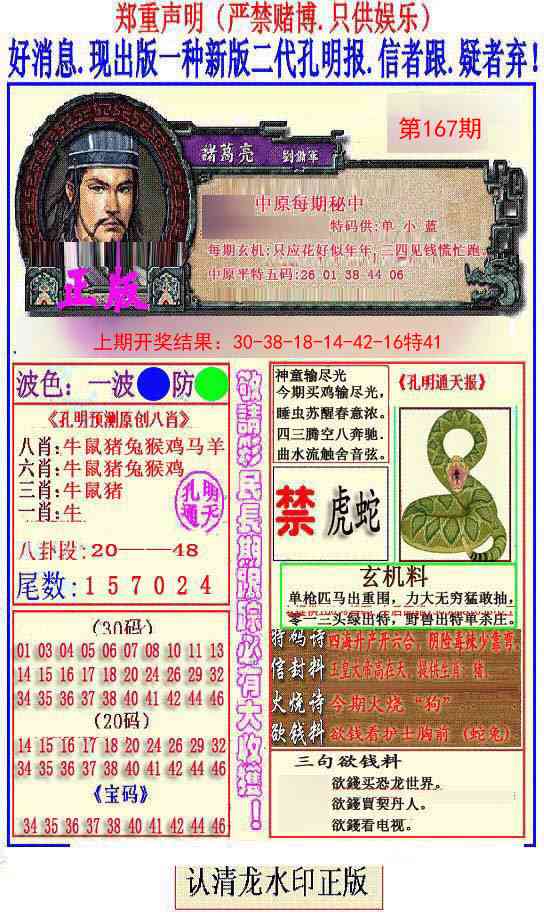 郑重声明（严禁赌博.只供娱乐）
好消息.现出版一种新版二代孔明报.信者跟.疑者弃!
諸葛亮
第167期
中原每期秘中
特码供:单 小 蓝
每期玄机:只应花好似年年,二四见钱慌忙跑.
中原平特五码:26 01 38 44 06
正版
上期开奖结果: 30-38-18-14-42-16特41
波色: 一波 防
《孔明预测原创八肖》
八肖:牛鼠猪兔猴鸡马羊
六肖:牛鼠猪兔猴鸡
三肖:牛鼠猪
一肖:牛
孔明
通天
八卦段:20——48
尾数:157024
(30码)
01 03 04 05 06 07 08 10 11 13
14 15 16 17 18 20 24 26 29 32
34 35 36 37 38 40 41 42 44 46
(20码)
14 15 16 17 18 20 24 26 29 32
34 35 36 37 38 40 41 42 44 46
《宝码》
34 35 36 37 38 40 41 42 44 46
敬請彩民長期跟踪必有大收獲!
神童输尽光
今期买鸡输尽光，
睡虫苏醒春意浓。
四三腾空八奔驰.
曲水流触舍音弦。
《孔明通天报》
禁
虎蛇
玄机料
单枪匹马出重围，力大无穷猛敢抽，
零一二头绿出特，野兽出特单杀庄。
特码诗 四海升产开六合，阴险毒辣少靠弯.
信封料 玉皇大帝高在天，提供生肖：猪.
火烧诗 今期火烧“狗”
欲钱料 欲钱看护士胸前（蛇兔）
三句欲钱料
欲錢买恐龙世界。
欲錢買契丹人。
欲錢看电视。
认清龙水印正版